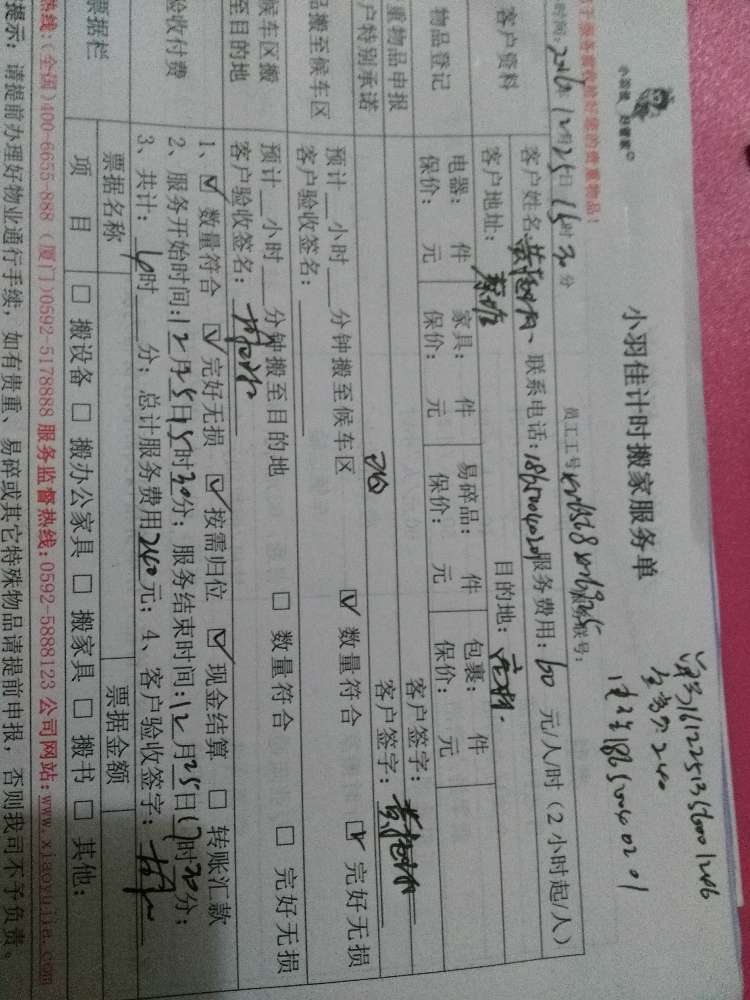 单号16122513560001206
全剪力240
18650040201
小羽佳 好管家
小羽佳计时搬家服务单
于服务当代的好您的贵重物品！
时间：2016年12月25日15时30分 员工工号 服务联号：
客户资料
客户姓名： 联系电话：18650040201 服务费用：60 元/人/时（2小时起/人）
客户地址：蔡塘 目的地：
物品登记
电器： 件 家具： 件 易碎品： 件 包裹： 件
保价： 元 保价： 元 保价： 元 保价： 元
重物品申报 客户签字：
户特别承诺 客户签字：
品搬至候车区
预计__小时__分钟搬至候车区 ☑ 数量符合 ☑ 完好无损
客户验收签名：
候车区搬至目的地
预计__小时__分钟搬至目的地 □ 数量符合 □ 完好无损
客户验收签名：
验收付费
1、☑ 数量符合 ☑ 完好无损 ☑ 按需归位 ☑ 现金结算 □ 转账汇款
2、服务开始时间：12月25日15时30分；服务结束时间：12月25日17时30分；
3、共计：6时__分；总计服务费用240元；4、客户验收签字：
票据栏
票据名称 票据金额
项 目 □ 搬设备 □ 搬办公家具 □ 搬家具 □ 搬书 □ 其他：
热线：(全国)400-6655-888 (厦门)0592-5178888 服务监督热线：0592-5888123 公司网站：www.xiaoyujia.com
提示：请提前办理好物业通行手续，如有贵重、易碎或其它特殊物品请提前申报，否则我司不予负责。